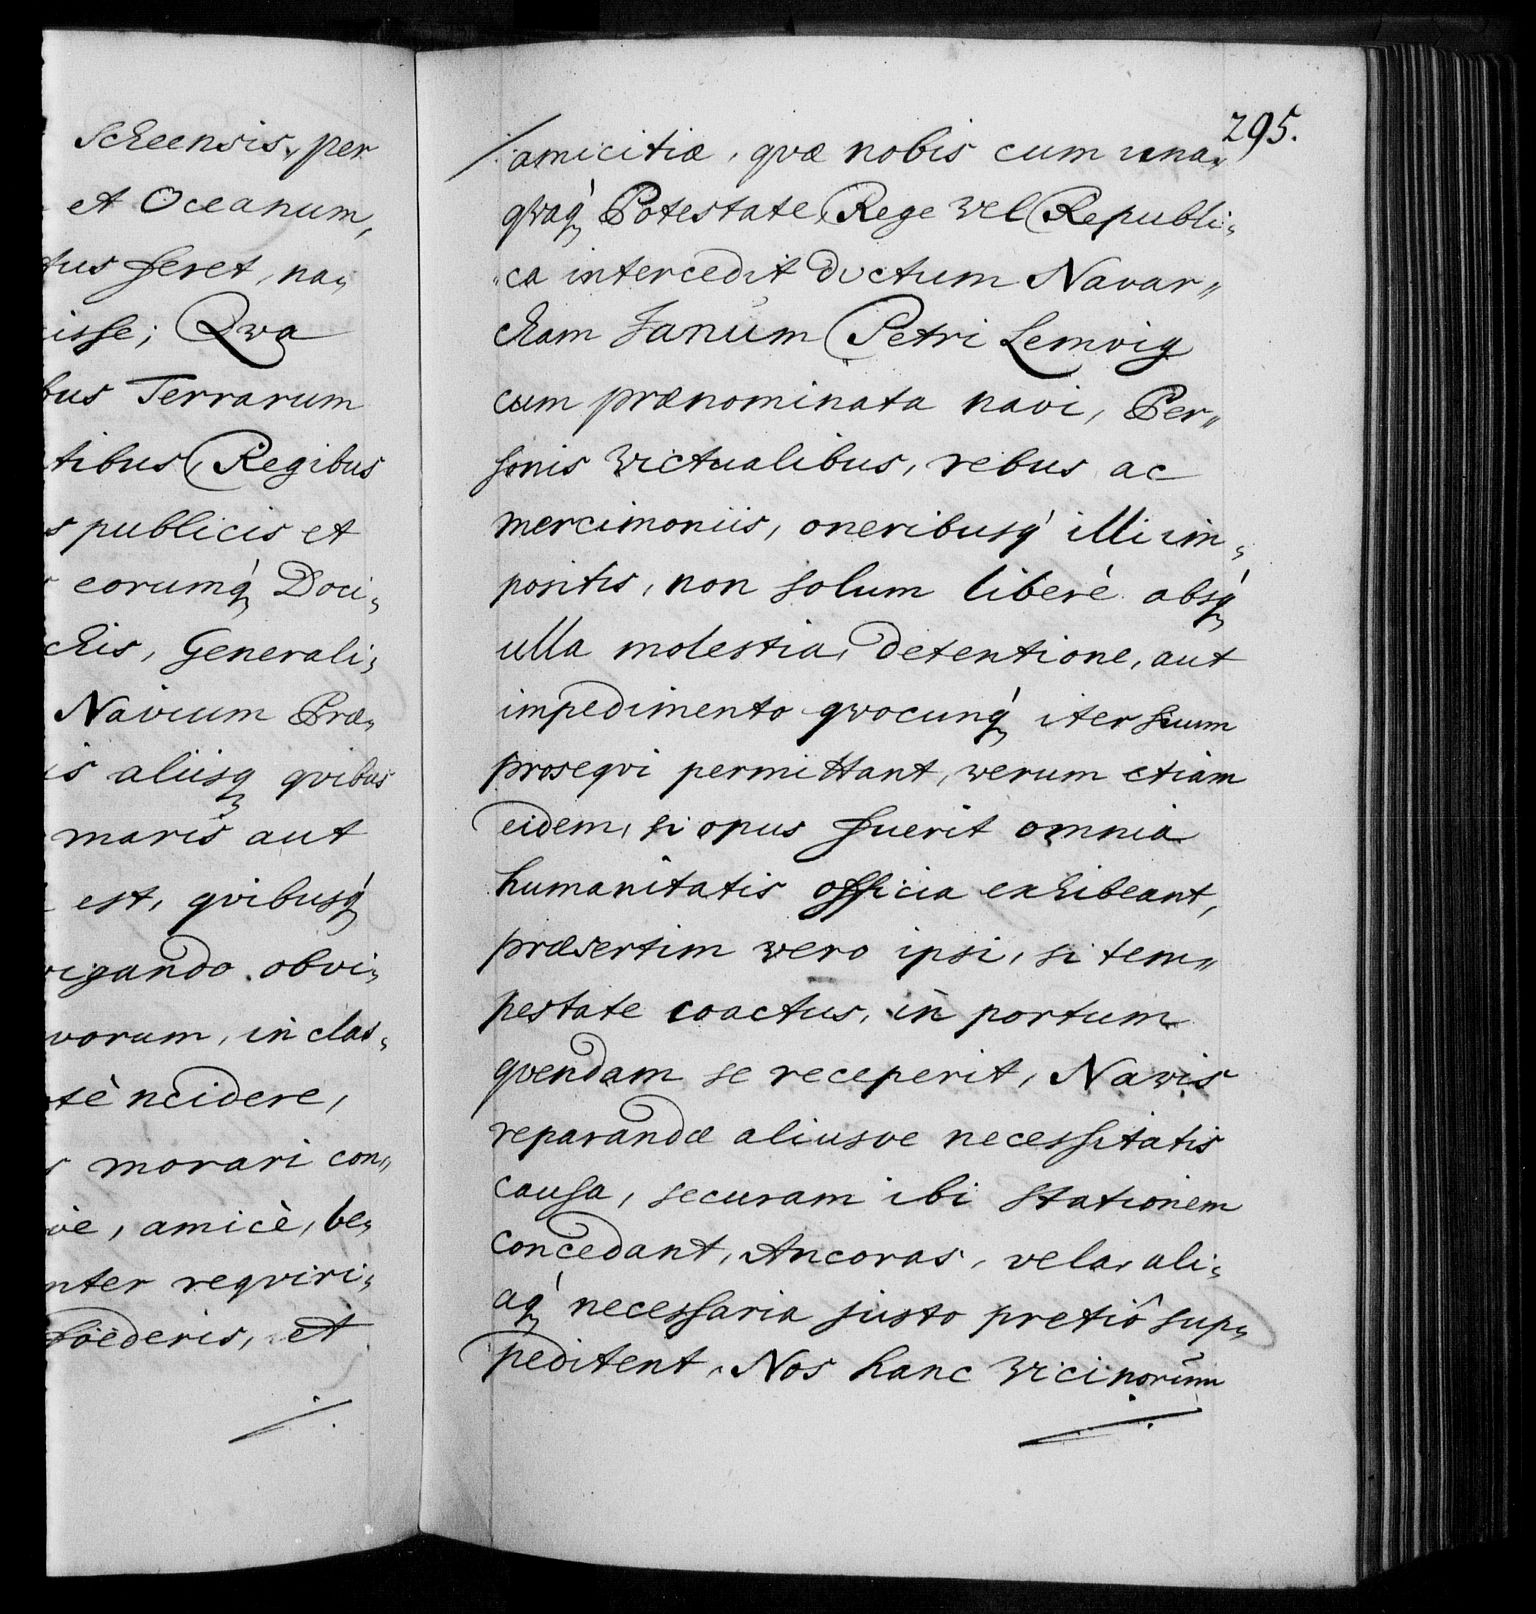 Scheensis, per
et Oceanum,
tus feret, na„
isse; Qva
bus Terrarum
tibus, Regibus
s publicis et
eorumq́; Doci„
chis, Generali„
Navium Præ„
is aliisq; qvibus
maris aut
est, qvibusq́;
vigando obvi„
vorum, in clas„
tè ncidere,
s morari con„
vè, amicè, be„
nter reqviri„
foederis, et
295.
amicitiæ, qvæ nobis cum una„
qvaq́; Potestate, Rege vel Republi„
„ca intercedit dictum Navar„
cham Janum Petri Lemvig
cum prænominata navi, Per„
sonis victualibus, rebus ac
mercimoniis, oneribusq́ illi im„
positis, non solum liberè absq́;
ulla molestia, detentione, aut
impedimento qvocunq́; iter suum
proseqvi permittant, verum etiam
eidem, si opus fuerit omnia
humanitatis officia exhibeant,
præsertim vero ipsi, si tem„
pestate coactus, in portum
qvendam se receperit, Navis
reparandæ aliusve necessitatis
causa, securam ibi stationem
concedant, Ancoras, vela, ali„
aq́; necessaria justo pretiô sup„
peditent, Nos hanc vicinorum